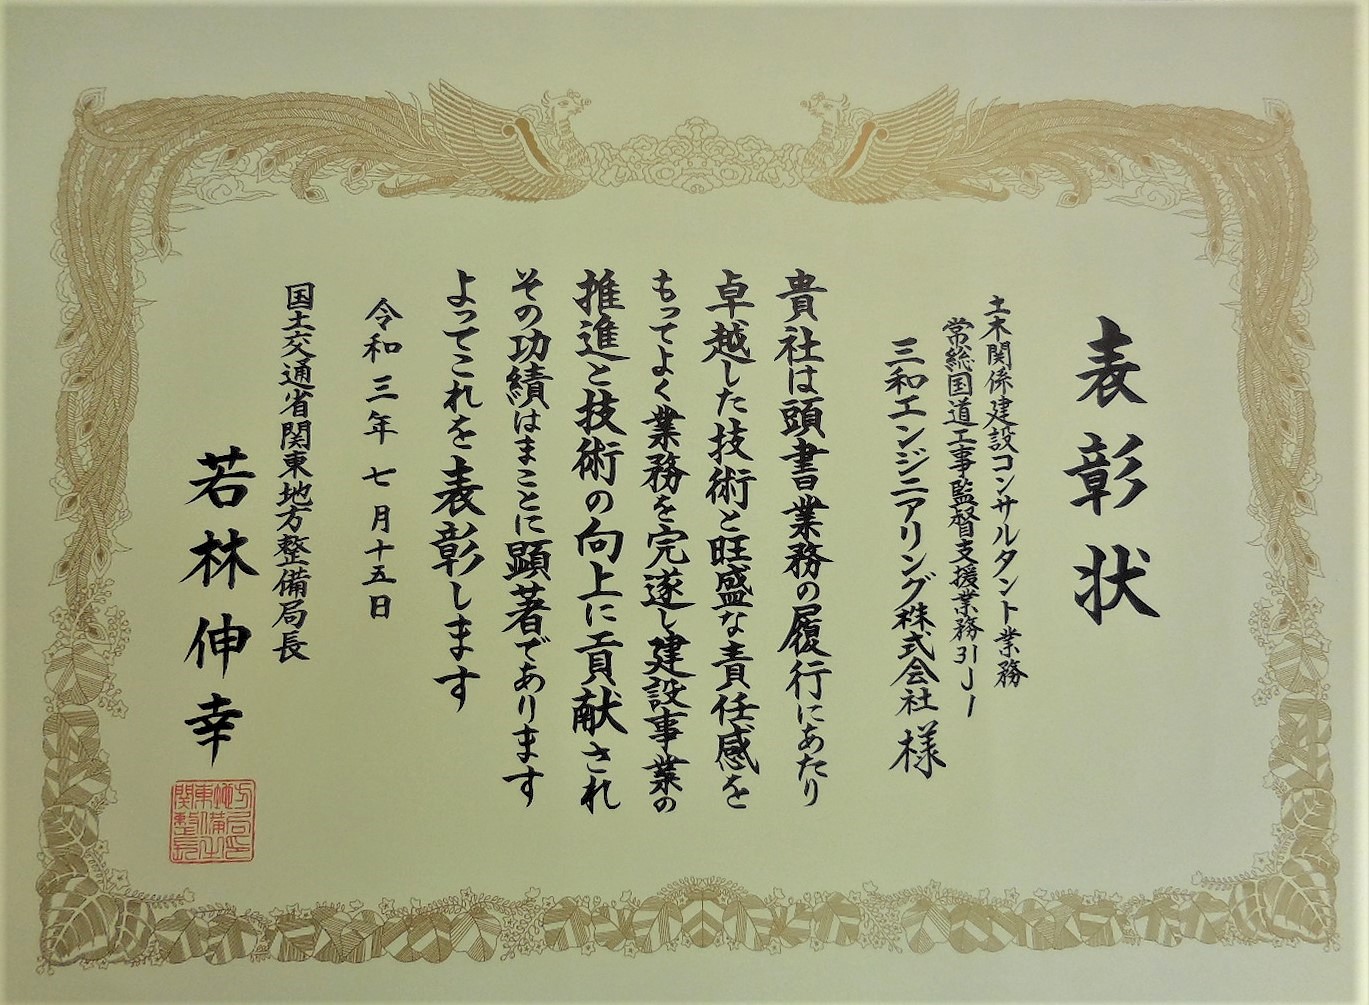 表彰状
土木関係建設コンサルタント業務
常総国道工事監督支援業務31J1
三和エンジニアリング株式会社様
貴社は頭書業務の履行にあたり
卓越した技術と旺盛な責任感を
もってよく業務を完遂し建設事業の
推進と技術の向上に貢献され
その功績はまことに顕著であります
よってこれを表彰します
令和三年七月十五日
国土交通省関東地方整備局長
若林伸幸